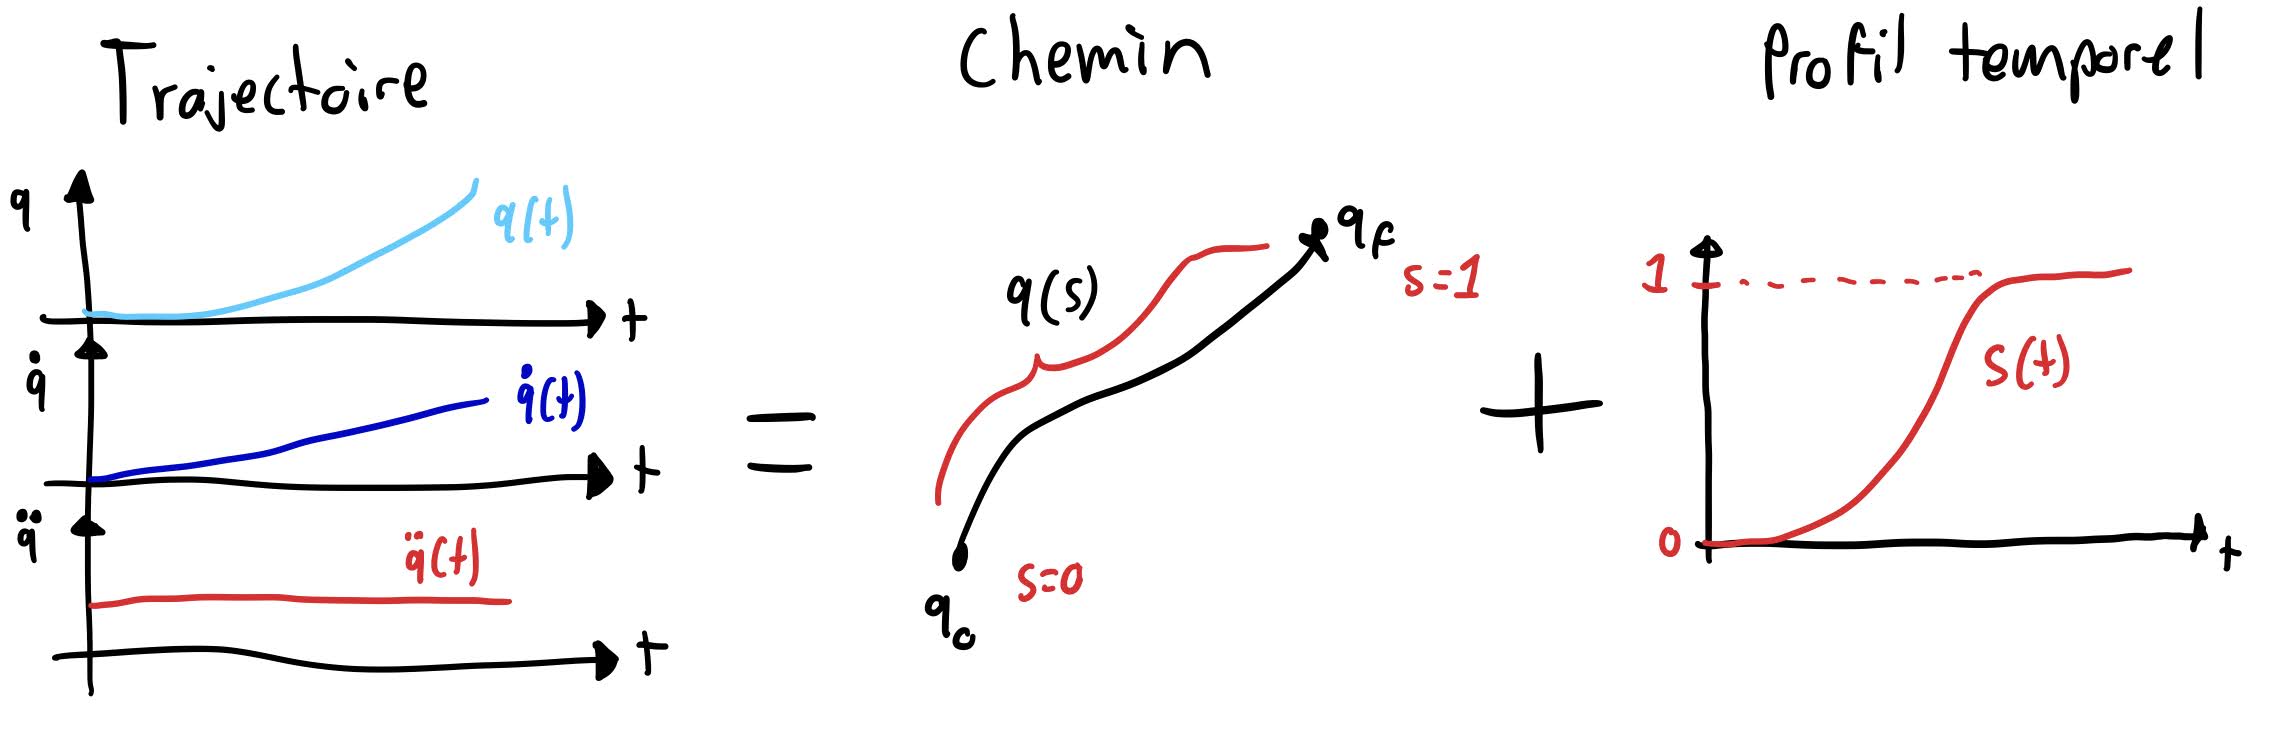 Trajectoire
q
q(t)
t
q̇
q̇(t)
t
q̈
q̈(t)
t
=
Chemin
q(s)
q_f
s=1
q_0
s=0
+
Profil temporel
1
s(t)
0
t